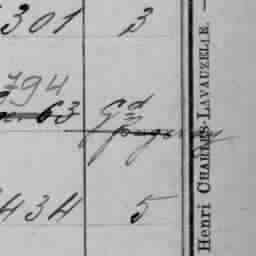 301 3
794
63 Gd
434 5
Henri CHARLES-LAVAUZELLE. —